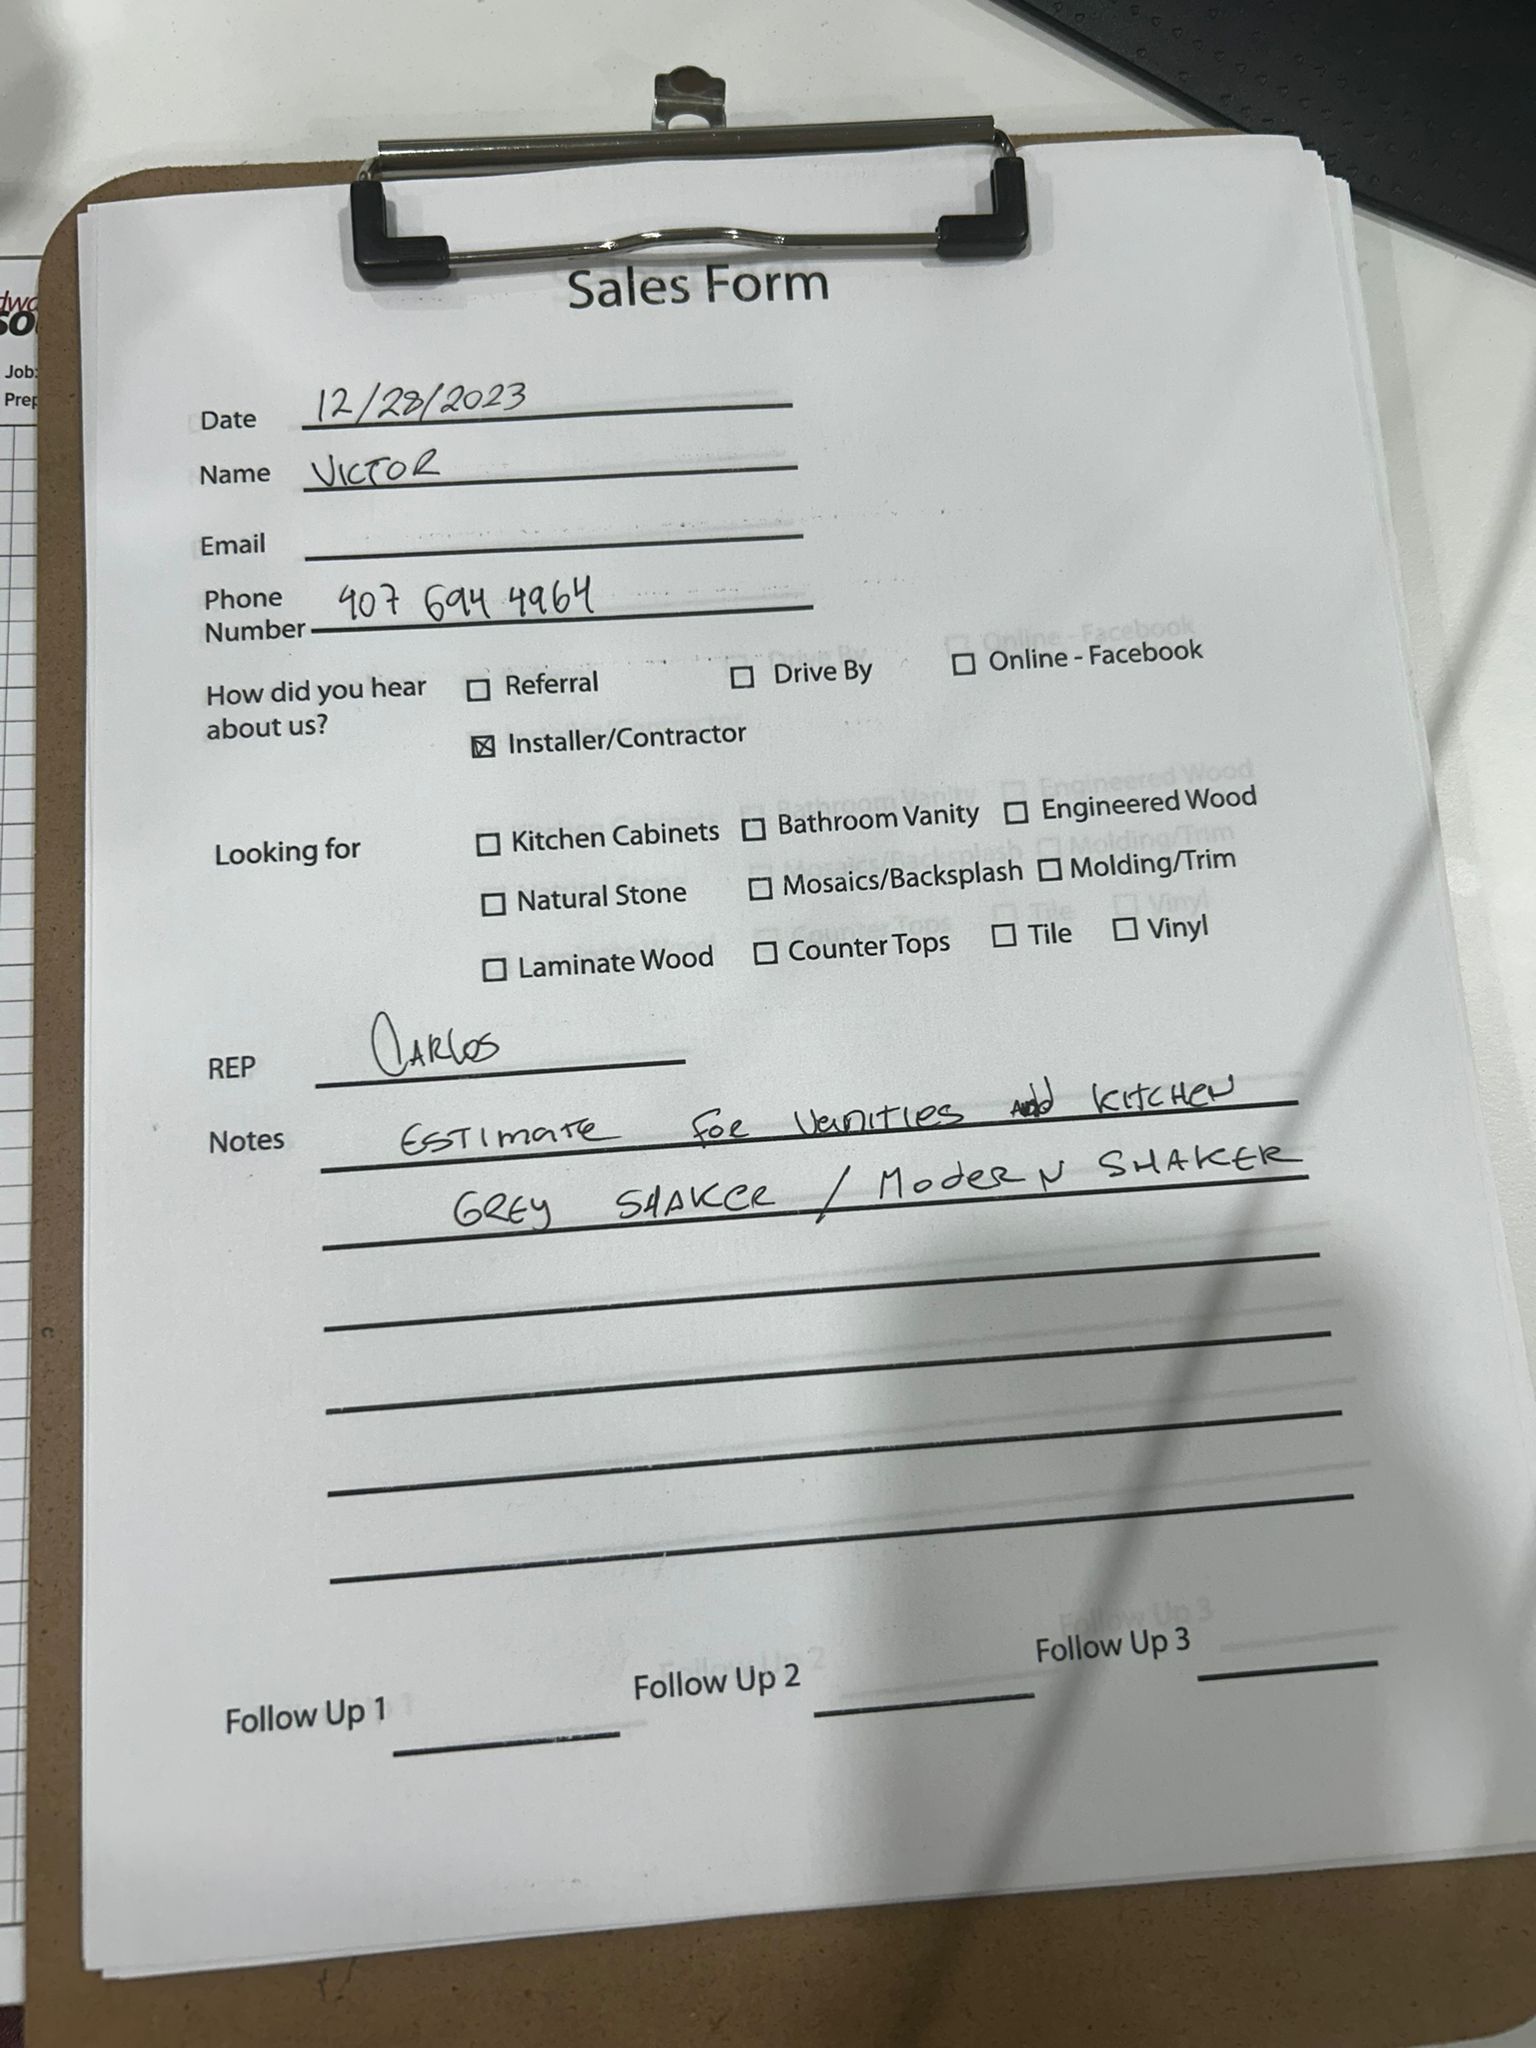 Sales Form
Date 12/28/2023
Name VICTOR
Email
Phone
Number 407 694 4964
How did you hear
about us?
☐ Referral ☐ Drive By ☐ Online - Facebook
☒ Installer/Contractor
Looking for
☐ Kitchen Cabinets ☐ Bathroom Vanity ☐ Engineered Wood
☐ Natural Stone ☐ Mosaics/Backsplash ☐ Molding/Trim
☐ Laminate Wood ☐ Counter Tops ☐ Tile ☐ Vinyl
REP CARLOS
Notes ESTIMATE FOR VANITIES AND KITCHEN
GREY SHAKER / MODERN SHAKER
Follow Up 1 Follow Up 2 Follow Up 3
Job: